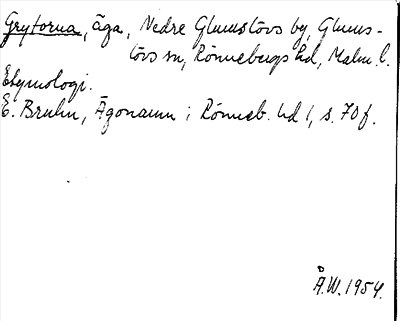 Grytorna, äga, Nedre Glumstövs by, Glums-
tövs sn, Rönnebergs hd, Malm. l.
Etymologi.
E. Bruhn, Ägonamn i Rönneb. hd 1, s. 70 f.
Å.W. 1954.